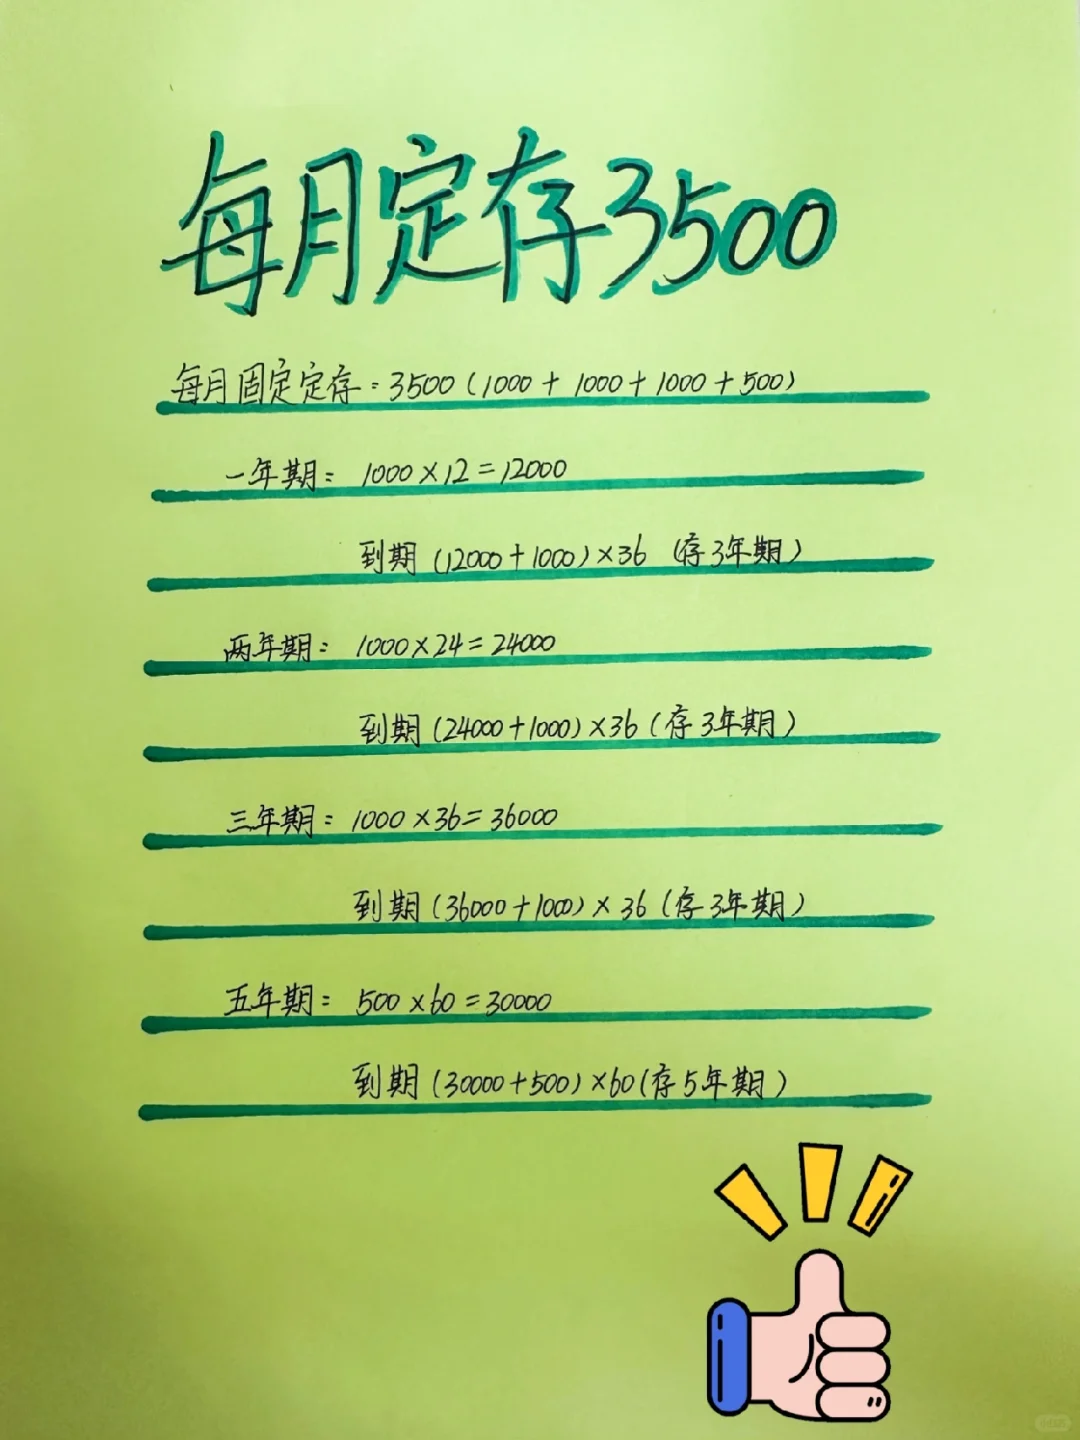 每月定存3500
每月固定定存：3500（1000 + 1000 + 1000 + 500）
一年期： 1000 × 12 = 12000
到期（12000 + 1000）× 36 （存3年期）
两年期： 1000 × 24 = 24000
到期（24000 + 1000）× 36（存3年期）
三年期： 1000 × 36 = 36000
到期（36000 + 1000）× 36（存3年期）
五年期： 500 × 60 = 30000
到期（30000 + 500）× 60（存5年期）